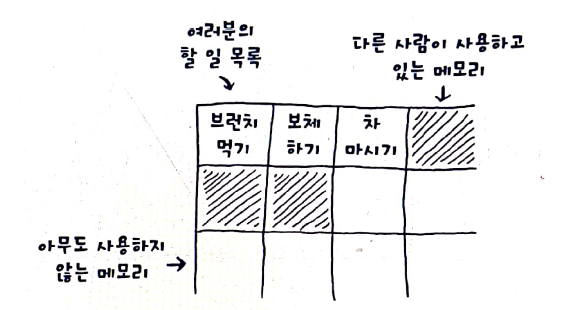 여러분의
할 일 목록
다른 사람이 사용하고
있는 메모리
브런치
먹기
보체
하기
차
마시기
아무도 사용하지
않는 메모리